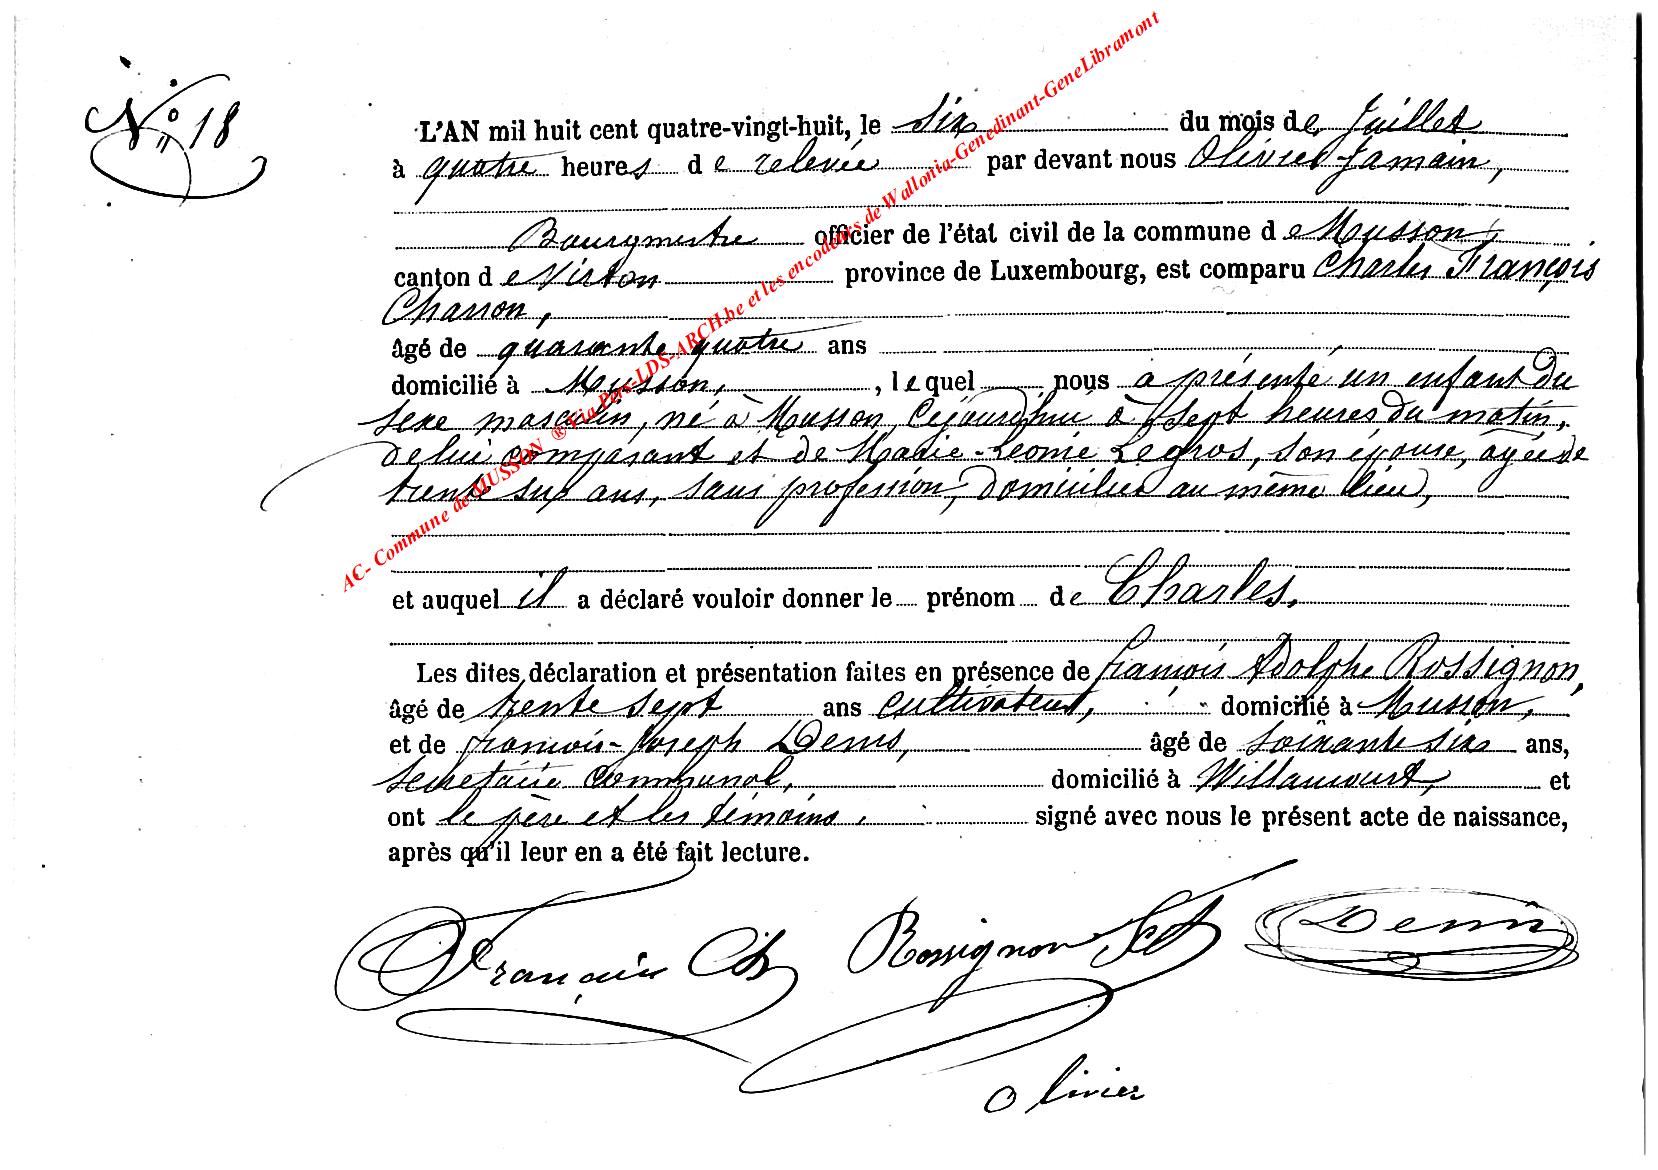 N° 18
L'AN mil huit cent quatre-vingt-huit, le six du mois de Juillet
à quatre heures de relevée par devant nous Olivier Jamain,
Bourgmestre officier de l'état civil de la commune de Musson,
canton de Virton province de Luxembourg, est comparu Charles François
Charron,
âgé de quarante quatre ans
domicilié à Musson, , lequel nous a présenté un enfant du
sexe masculin, né à Musson, cejourd'hui à sept heures du matin,
de lui comparant et de Marie-Léonie Legros, son épouse, âgée de
trente six ans, sans profession, domiciliée au même lieu,
et auquel il a déclaré vouloir donner le prénom de Charles.
Les dites déclaration et présentation faites en présence de François Adolphe Rossignon,
âgé de trente sept ans cultivateur, domicilié à Musson,
et de François-Joseph Denis, âgé de soixante six ans,
secrétaire communal, domicilié à Willancourt, et
ont le père et les témoins, signé avec nous le présent acte de naissance,
après qu'il leur en a été fait lecture.
François Ch Rossignon Denis
Olivier
AC- Commune de MUSSON ® Via Pers-LDS-ARCH.be et les encodeurs de Wallonia-Genedinant-GeneLibramont